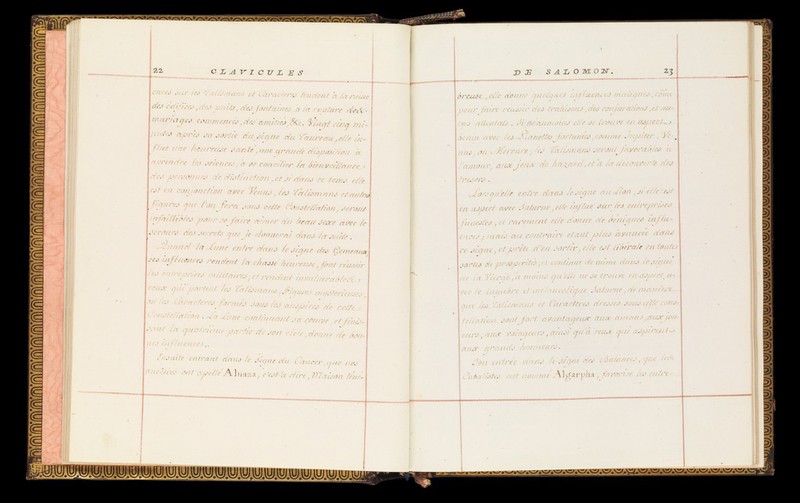 22 CLAVICULES
ences sur les Tallismans et Caracteres tendent à la ruine
des édifices, des puits, des fontaines, à la rupture des
mariages commencés, des amitiés, &c. Vingt cinq mi-
nutes après sa sortie du signe du Taureau, elle in-
flue une heureuse santé, une grande disposition à
apprendre les sciences, à se concilier la bienveillance
des personnes de distinction, et si dans ce tems elle
est en conjonction avec Venus, les Tallismans et autres
figures que l'on fera sous cette Constellation, seront
infaillibles pour se faire aimer du beau sexe avec le
secours des secrets que je donnerai dans la suite.
Quand la Lune entre dans le signe des Gemeaux
ses influences rendent la chasse heureuse, font réussir
les entreprises militaires, et rendent invulnérables
ceux qui portent les Tallismans, figures mysterieuses,
ou les Characteres formés sous les auspices de cette
Constellation. La Lune continuant sa course, et finis-
sant la quatrieme partie de son cercle, donne de bon-
nes influences.
Ensuite entrant dans le signe du Cancer, que nos
ancêtres ont apellé Alnaza, c'est-à-dire, Maison téné-
DE SALOMON. 23
breuse, elle donne quelques influences malignes, comme
pour faire réussir des trahisons, des conjurations, et au-
tres attentats. Si néanmoins elle se trouve en aspect
avec les Planettes fortunées, comme Jupiter, Ve-
nus, ou Mercure, les Tallismans seront favorables à
l'amour, aux jeux de hazard, et à la découverte des
tresors.
Lorsqu'elle entre dans le signe du Lion, si elle est
en aspect avec Saturne, elle influe sur les entreprises
funestes, et rarement elle donne de bénignes influ-
ences; mais au contraire étant plus avancée dans
ce signe, et prête d'en sortir, elle est libérale en toutes
sortes de prosperités, et continue de même dans le signe
de la Vierge, à moins qu'elle ne se trouve en aspect a-
vec le lugubre et mélancolique Saturne, de maniere
que les Tallismans et Caracteres dressés sous cette cons-
tellation sont fort avantageux aux amans, aux jou-
eurs, aux voiageurs, ainsi qu'à ceux qui aspirent
aux grands honneurs.
Son entrée dans le signe des Balances, que les
Cabalistes ont nommé Algarpha, favorise les entre-